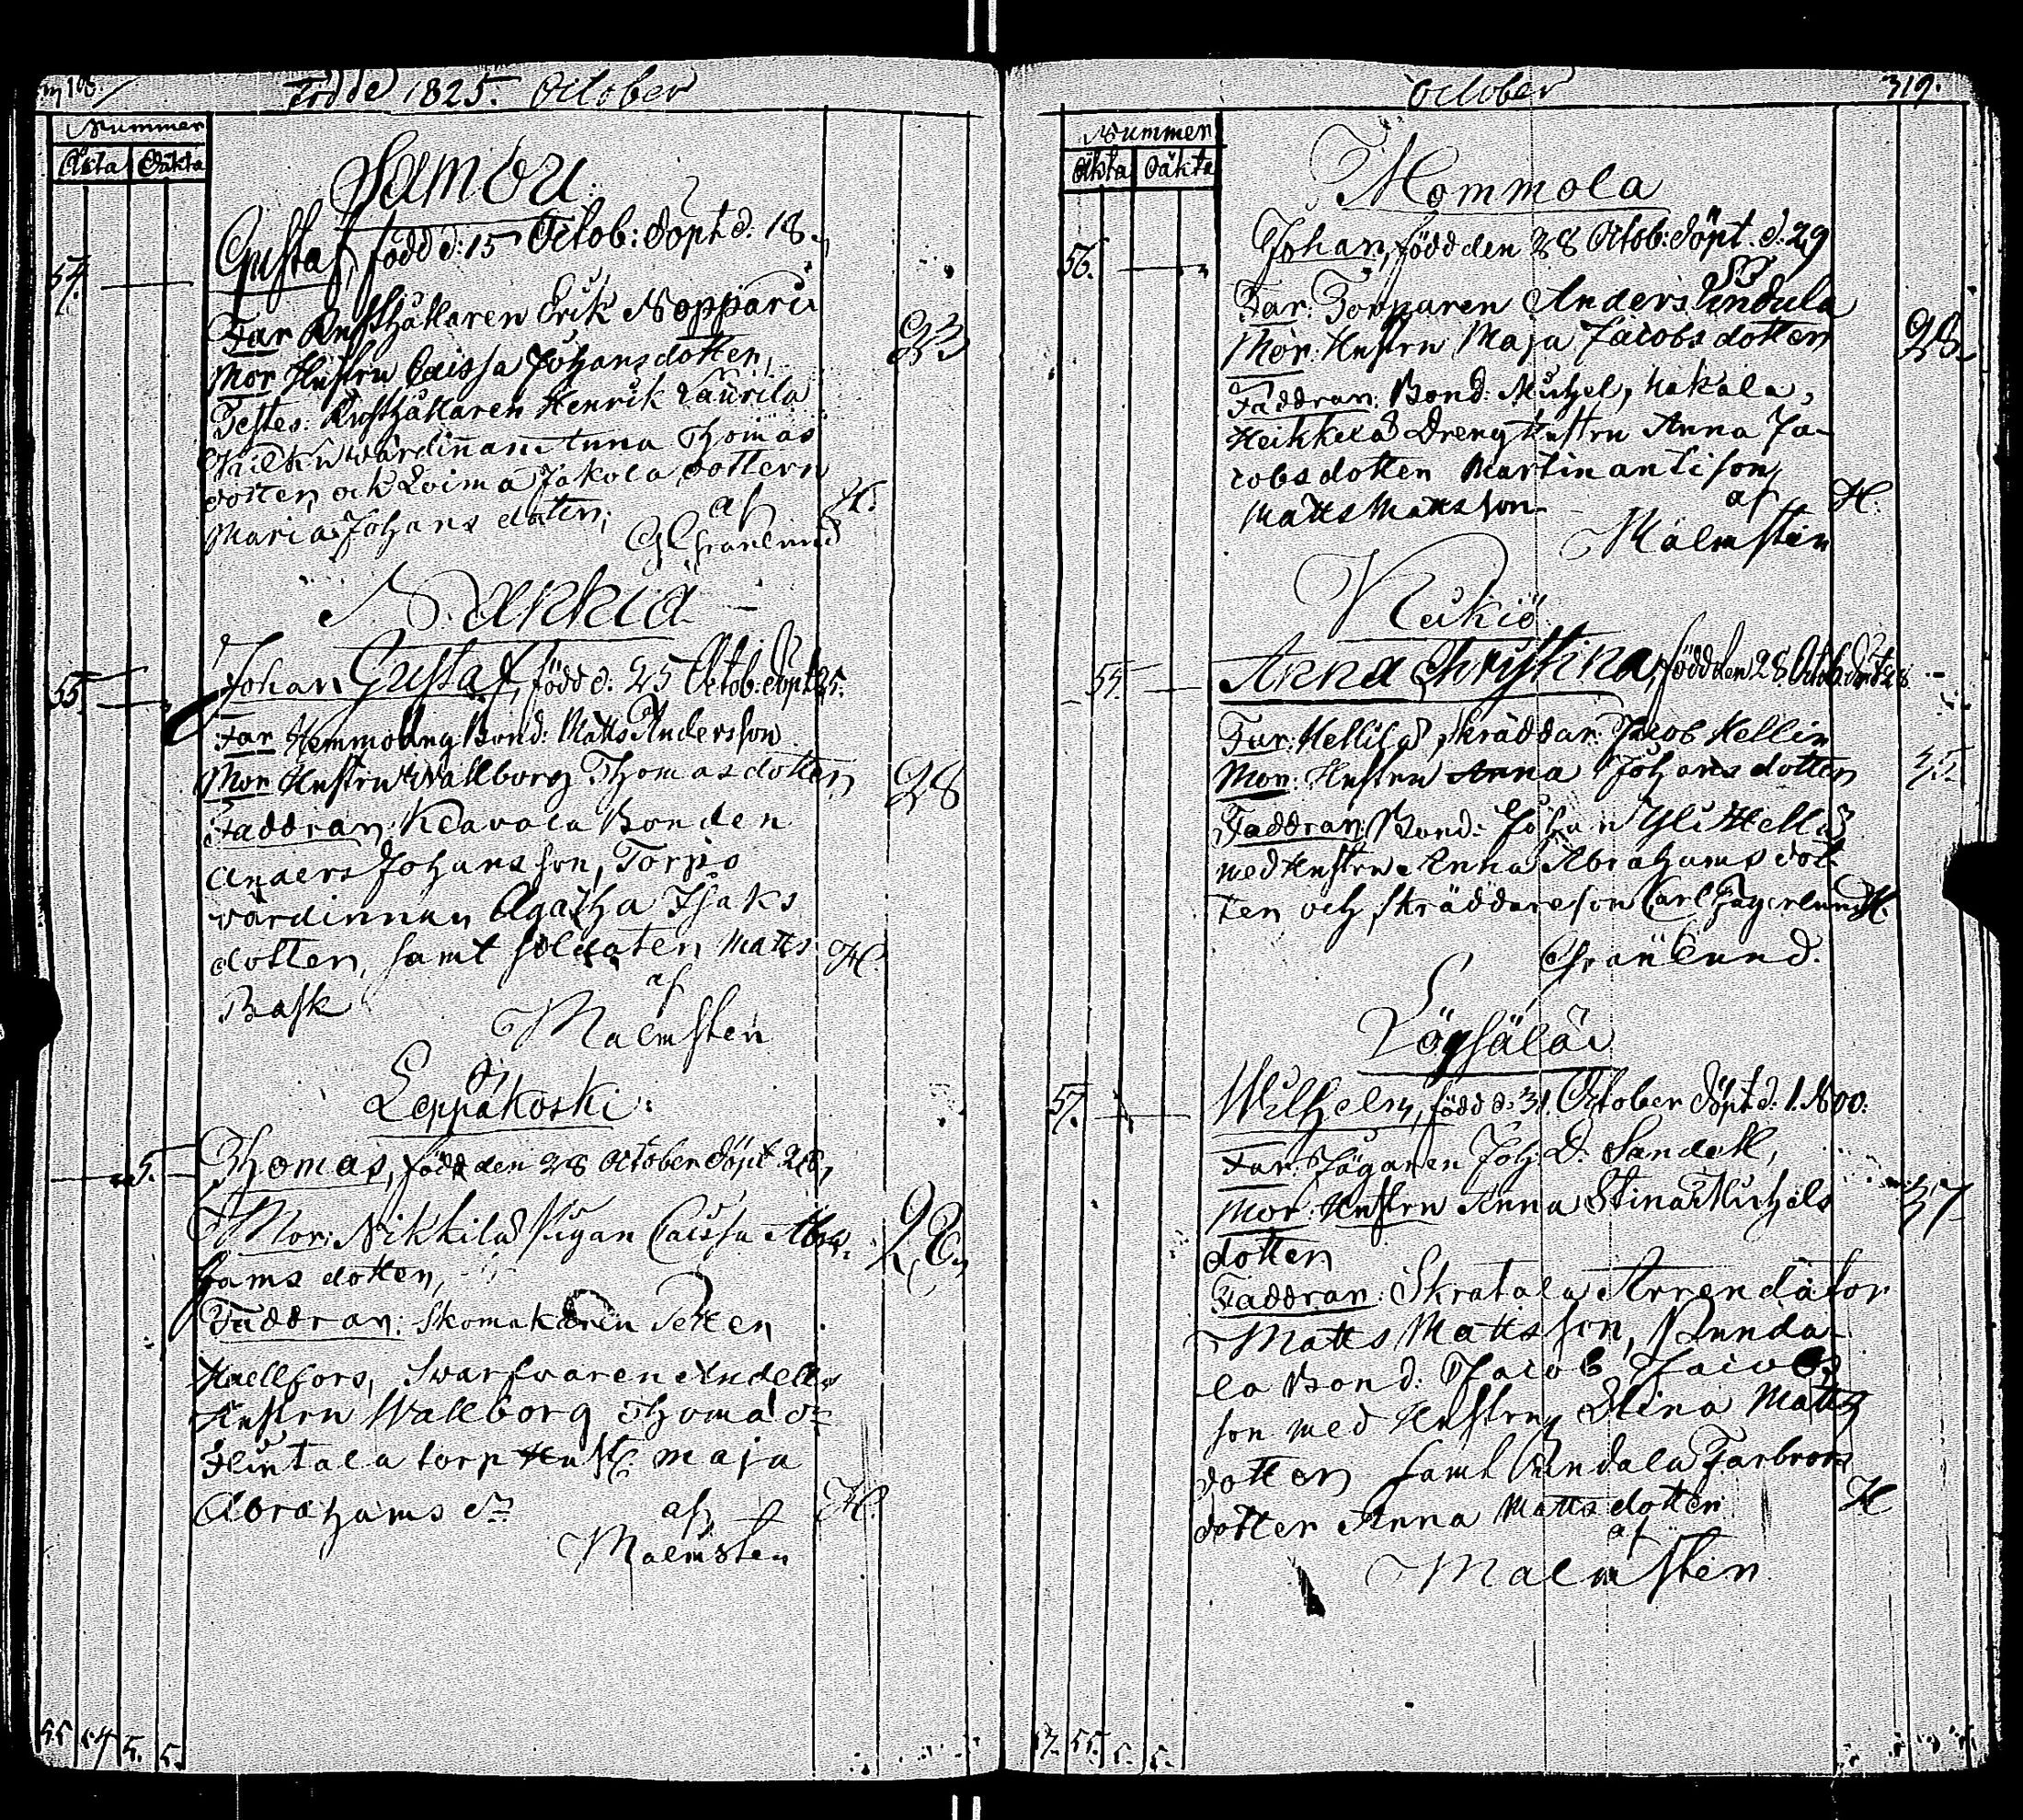 Född 1825. October
Nummer
Äkta Oäkta
Samou
54.
Gustaf, född d: 15 Octob: döpt d. 18.
Far Rusthållaren Erik Noppari
Mor Hustru Caissa Johansdotter,
33
Testes: Rusthållaren Henrik Laurila
wärdinnan Anna Thomas
dotter, och Loima Jakola dottern
Maria Johans dotter; af H.
Granlund
55.
Johan Gustaf, född d: 25 Octob: döpt 25.
Far Bond: Matts Andersson
Mor Hustru Wallborg Thomasdotter
28
Faddrar: Keavola Bonden
Anders Johansson, Torpo
värdinnan Agatha Isaks
dotter, samt soldaten Matts H.
Bask af
Malmsten
Leppäkoski:
5.
Thomas, född den 28 October döpt 28,
Mor: Nikkilä Pigan Caissa Abra-
hams dotter,
28
Faddrar: Skomakaren Petter
Haellfors, Swarfvaren
Hustru Wallborg Thoma dr
torp Hust: Maja
Abrahams dr af H.
Malmsten
55 54 5. 5.
October 319.
Nummer
Äkta Oäkta
Mommola
56.
Johan, född den 28 Octob: döpt. d. 29
Far: Torparen Anders
Mor: Hustru Maja Jacobsdotter
28.
Faddrar: Bond: Michel, Hakala,
Heikkilä Dreng Hustru Anna Ja-
cobsdotter Martin anti son,
Matts Mattsson af H.
Malmsten
Keikiö
55.
Anna Christina, född den 28. Octob. döpt 28
Far: Hellilä Skräddar: Jacob Hellin
Mor: Hustru Anna Johans dotter
35.
Faddrar: Bond: Johan Yli Hellä
med Hustru Anna Abrahams dot-
ter och skräddareson Carl Fagerlund H.
Granlund.
57.
Wilhelm, född d: 31. October döpt d: 1. Nov.
Far: Jägaren Joh: D: Sandell,
Mor: Hustru Anna Stina Michels
dotter
37
Faddrar: Skratala Arrendator
Matts Mattsson, Runda-
la Bond: Jacob Jacobs
son med Hustru Stina Matts
dotter samt Rundala Farbrors
dotter Anna Matts dotter H
af
Malmsten